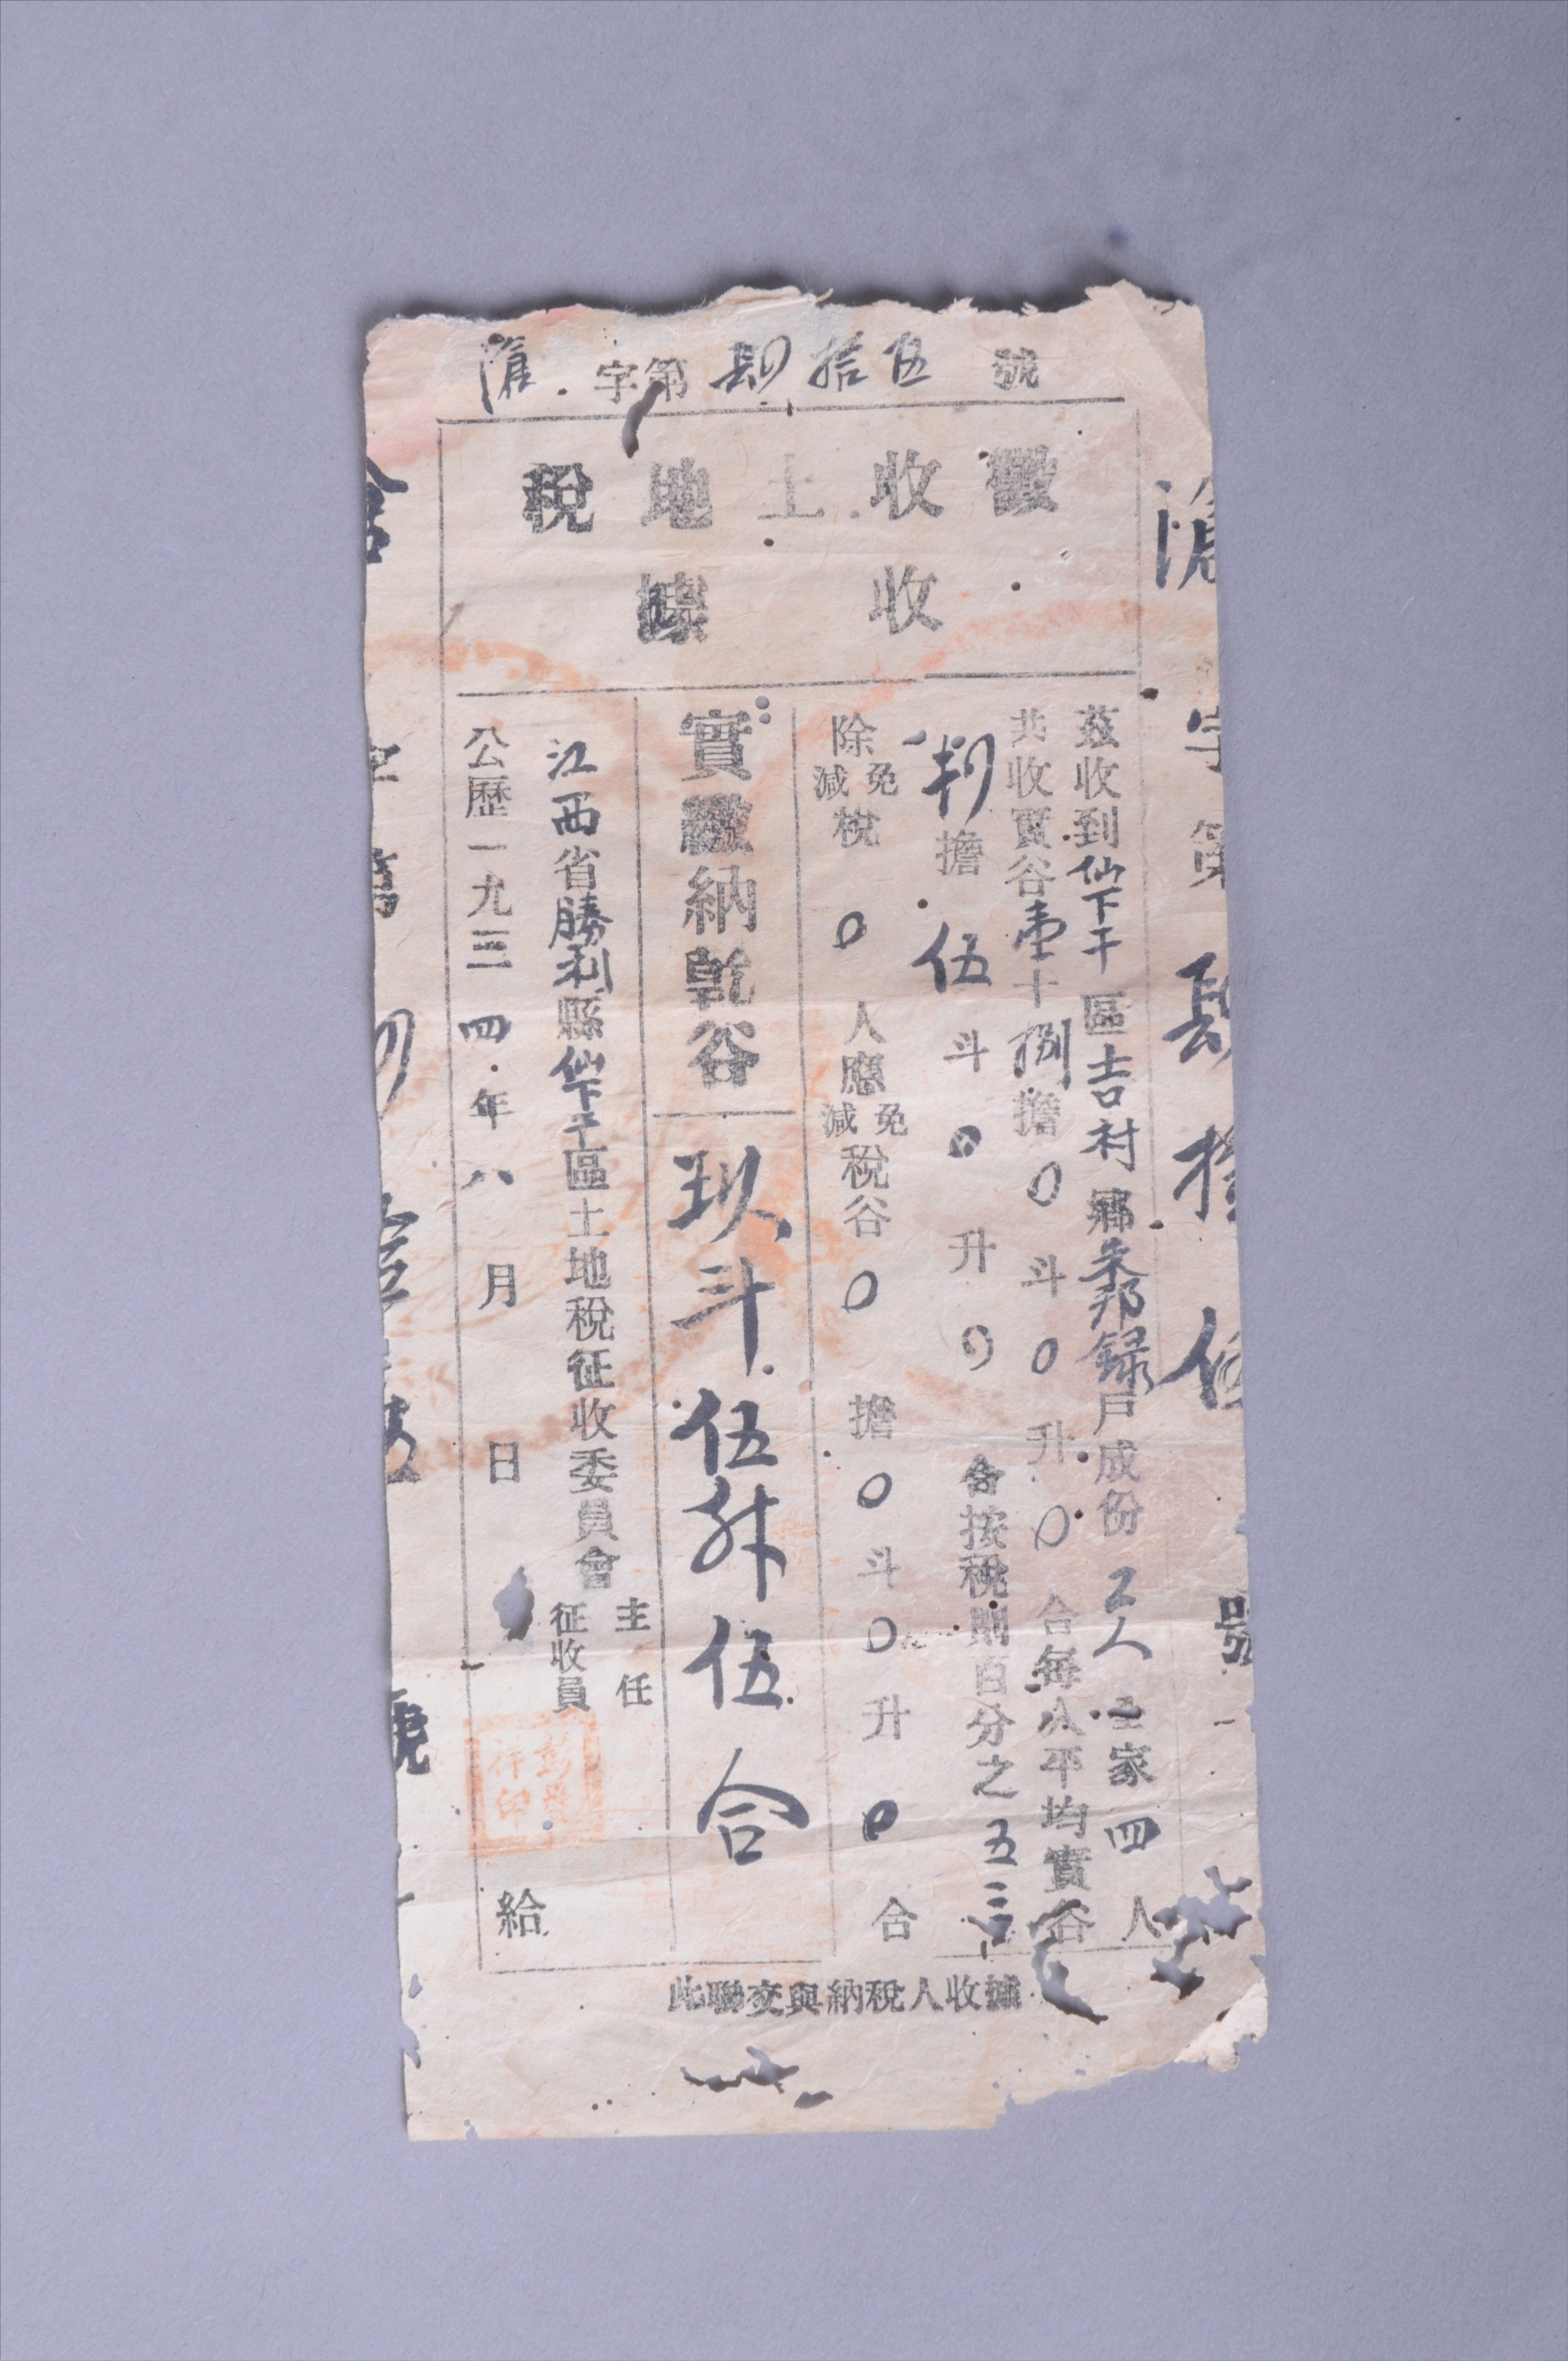 字第肆拾伍號
徵收土地稅
收據
茲收到仙下干區吉村鄉朱邦録戶成份工人全家四人
共收實谷壹十捌擔0斗0升0合每人平均實谷
肆擔伍斗0升0合按稅則百分之五三
除免減稅0人應免減稅谷0擔0斗0升0合
實徵納乾谷玖斗伍升伍合
江西省勝利縣仙下干區土地稅征收委員會主任征收員
公歷一九三四年八月日給
此聯交與納稅人收據
字第肆拾伍號